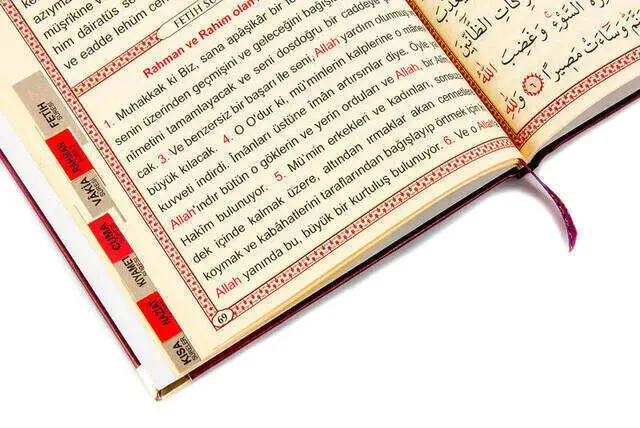 azıyma
müşrikîne
him dâiratüs
ve eadde lehüm cehe
FETİH SÛ
Rahman ve Rahim olan
1. Muhakkak ki Biz, sana apâşikâr bir
senin üzerinden geçmişini ve geleceğini bağış
nimetini tamamlayacak ve seni dosdoğru bir caddeye
cak. 3. Ve benzersiz bir başarı ile seni, Allah yardım olunmuş
büyük kılacak. 4. O O'dur ki, mü'minlerin kalplerine o mâne
kuvveti indirdi. İmânları üstüne îmân artırsınlar diye. Öyle y
Allah'indir bütün o göklerin ve yerin orduları ve Allah, bir Alîm
Hakîm bulunuyor. 5. Mü'min erkekleri ve kadınları, sonsuz
dek içinde kalmak üzere, altından ırmaklar akan cennetler
koymak ve kabâhatlerini taraflarından bağışlayıp örtmek için
Allah yanında bu, büyük bir kurtuluş bulunuyor. 6. Ve o Allah
69
FETİH
SÛRESİ
RAHMAN
VÂKIA
CUMA
KIYAMET
NAZİAT
KISA
SÛRELER
السَّوْءِ وَغَضِبَ اللّٰهُ
وَسَاءَتْ مَصِيرًا
٦ وَلِلّٰهِ